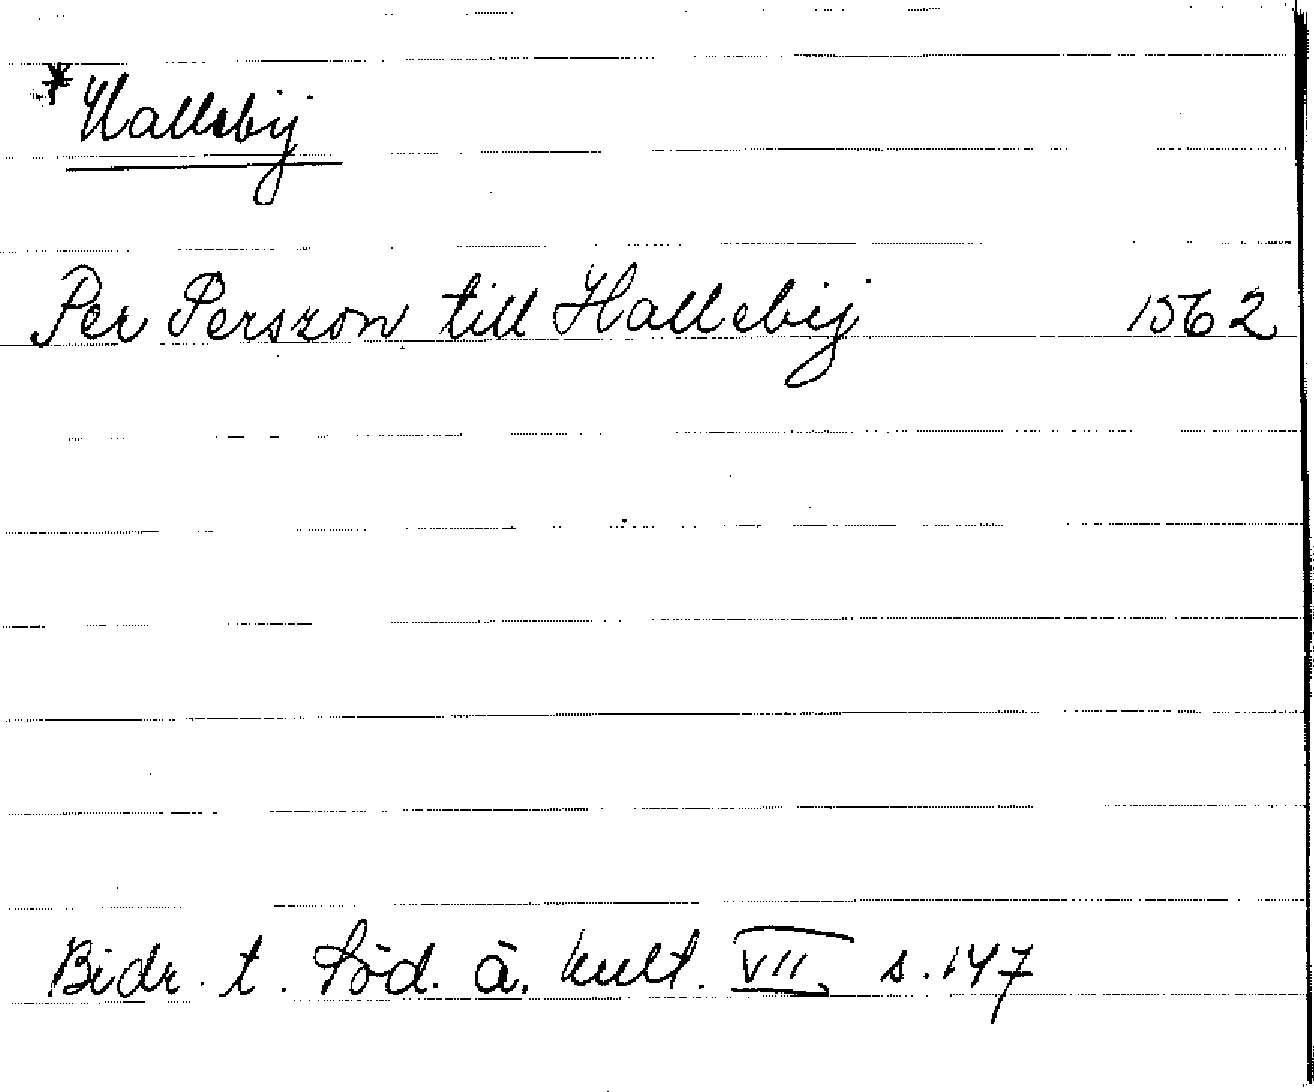 *Hallebij
Per Perszon till Hallebij 1562
Bidr. t. Söd. ä. kult. VII s. 147